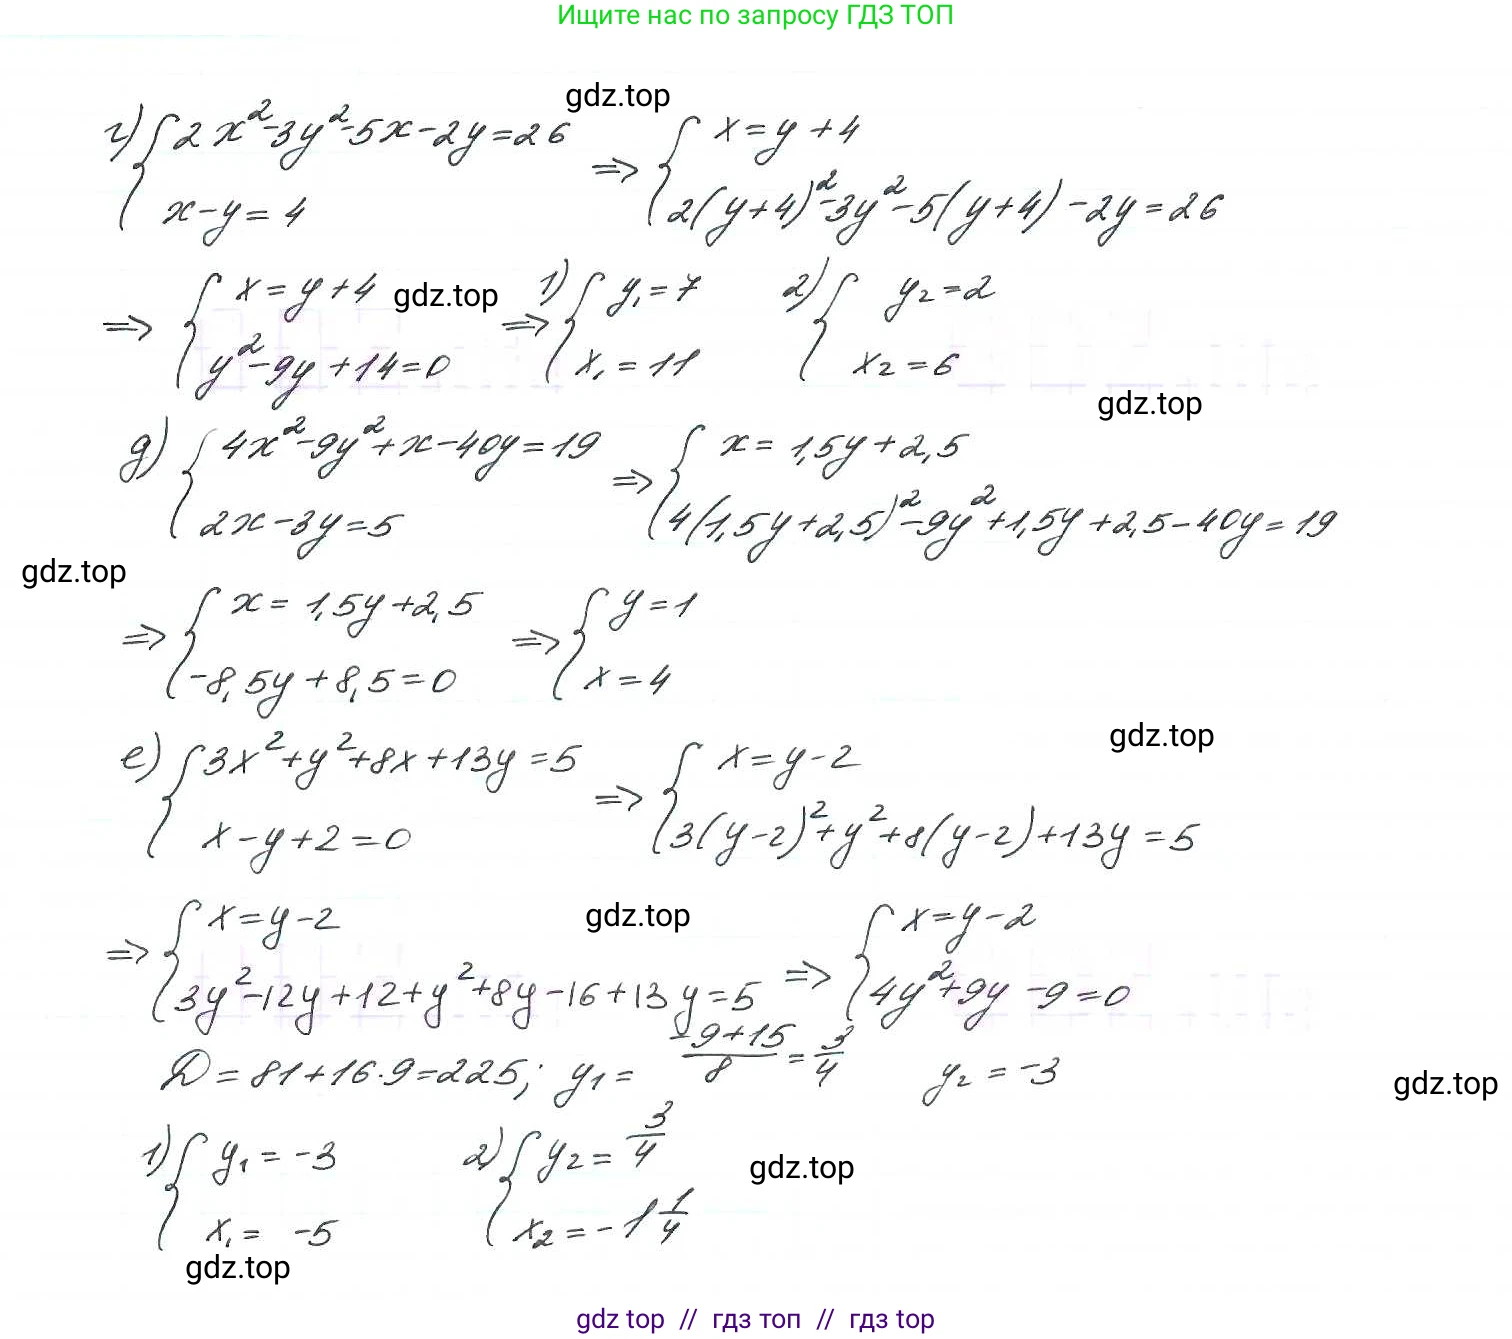 Ищите нас по запросу ГДЗ ТОП
gdz.top
г) { 2x²-3y²-5x-2y=26 ⇒ { x=y+4
x-y=4 2(y+4)²-3y²-5(y+4)-2y=26
⇒ { x=y+4 gdz.top ⇒ 1) { y₁=7 2) { y₂=2
y²-9y+14=0 x₁=11 x₂=6
gdz.top
д) { 4x²-9y²+x-40y=19 ⇒ { x=1,5y+2,5
2x-3y=5 4(1,5y+2,5)²-9y²+1,5y+2,5-40y=19
gdz.top
⇒ { x=1,5y+2,5 ⇒ { y=1
-8,5y+8,5=0 x=4
gdz.top
е) { 3x²+y²+8x+13y=5 ⇒ { x=y-2
x-y+2=0 3(y-2)²+y²+8(y-2)+13y=5
⇒ { x=y-2 gdz.top ⇒ { x=y-2
3y²-12y+12+y²+8y-16+13y=5 4y²+9y-9=0
D=81+16·9=225; y₁= -9+15/8 = 3/4 y₂=-3
gdz.top
1) { y₁=-3 2) { y₂=3/4
gdz.top
x₁= -5 x₂=-1 1/4
gdz.top
gdz top // гдз топ // gdz top